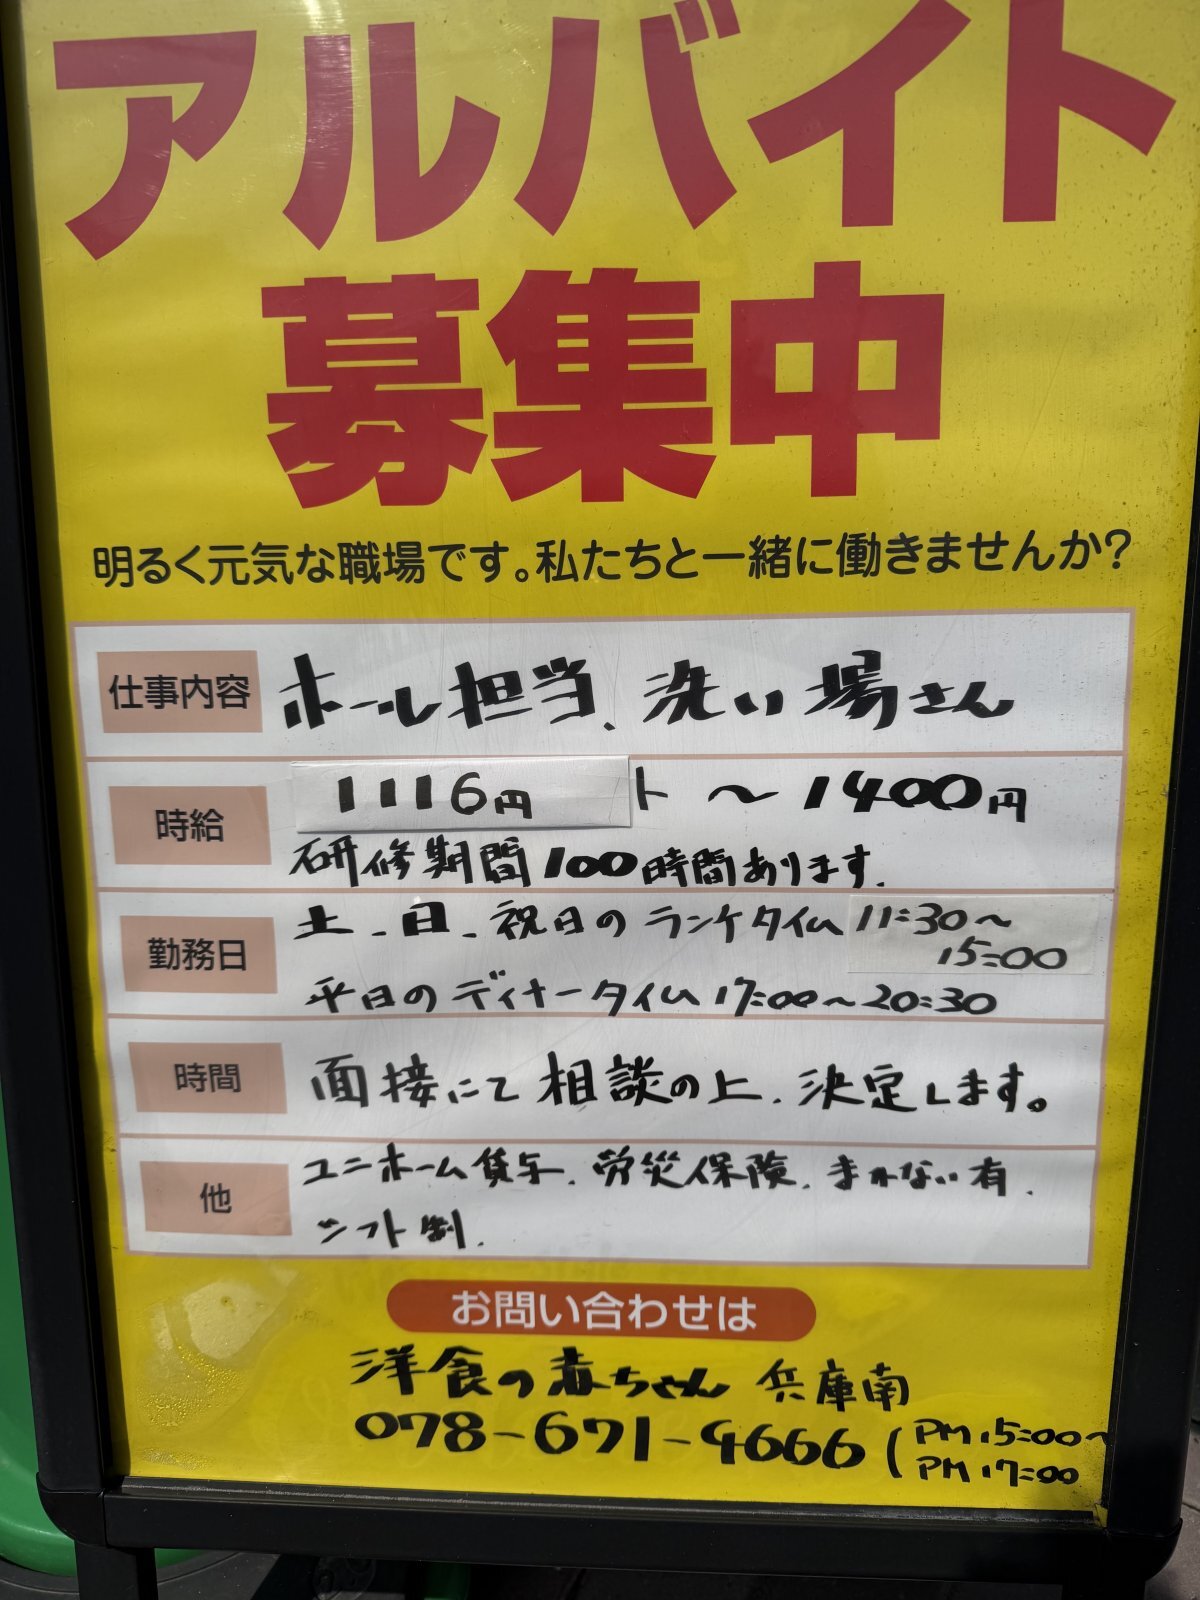 アルバイト
募集中
明るく元気な職場です。私たちと一緒に働きませんか?
仕事内容 ホール担当、洗い場さん
時給 1116円 ト ～1400円
研修期間100時間あります.
勤務日 土、日、祝日のランチタイム 11:30～
15:00
平日のディナータイム17:00～20:30
時間 面接にて相談の上、決定します。
他 ユニホーム貸与、労災保険、まかない有、
シフト制.
お問い合わせは
洋食の赤ちゃん 兵庫南
078-671-4666 (PM 15:00～
PM 17:00